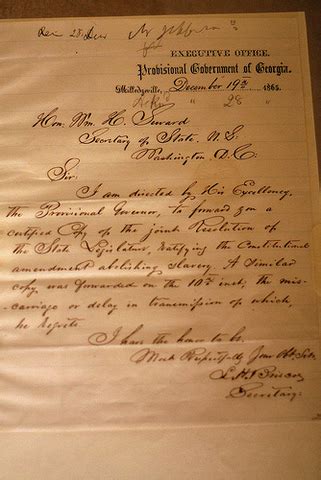 EXECUTIVE OFFICE.
Provisional Government of Georgia.
Milledgeville, December 19th 1865.
" 28 "
Hon. Wm. H. Seward
Secretary of State, U.S
Washington, D.C.
Sir:
I am directed by His Excellency,
the Provisional Governor, to forward you a
certified Copy of the joint Resolution of
the State Legislature, ratifying the Constitutional
amendment abolishing slavery. A Similar
copy was forwarded on the 10th inst, the mis-
carriage or delay in transmission of which,
he regrets.
I have the honor to be,
Most Respectfully Your Obt. Svt.
Secretary.